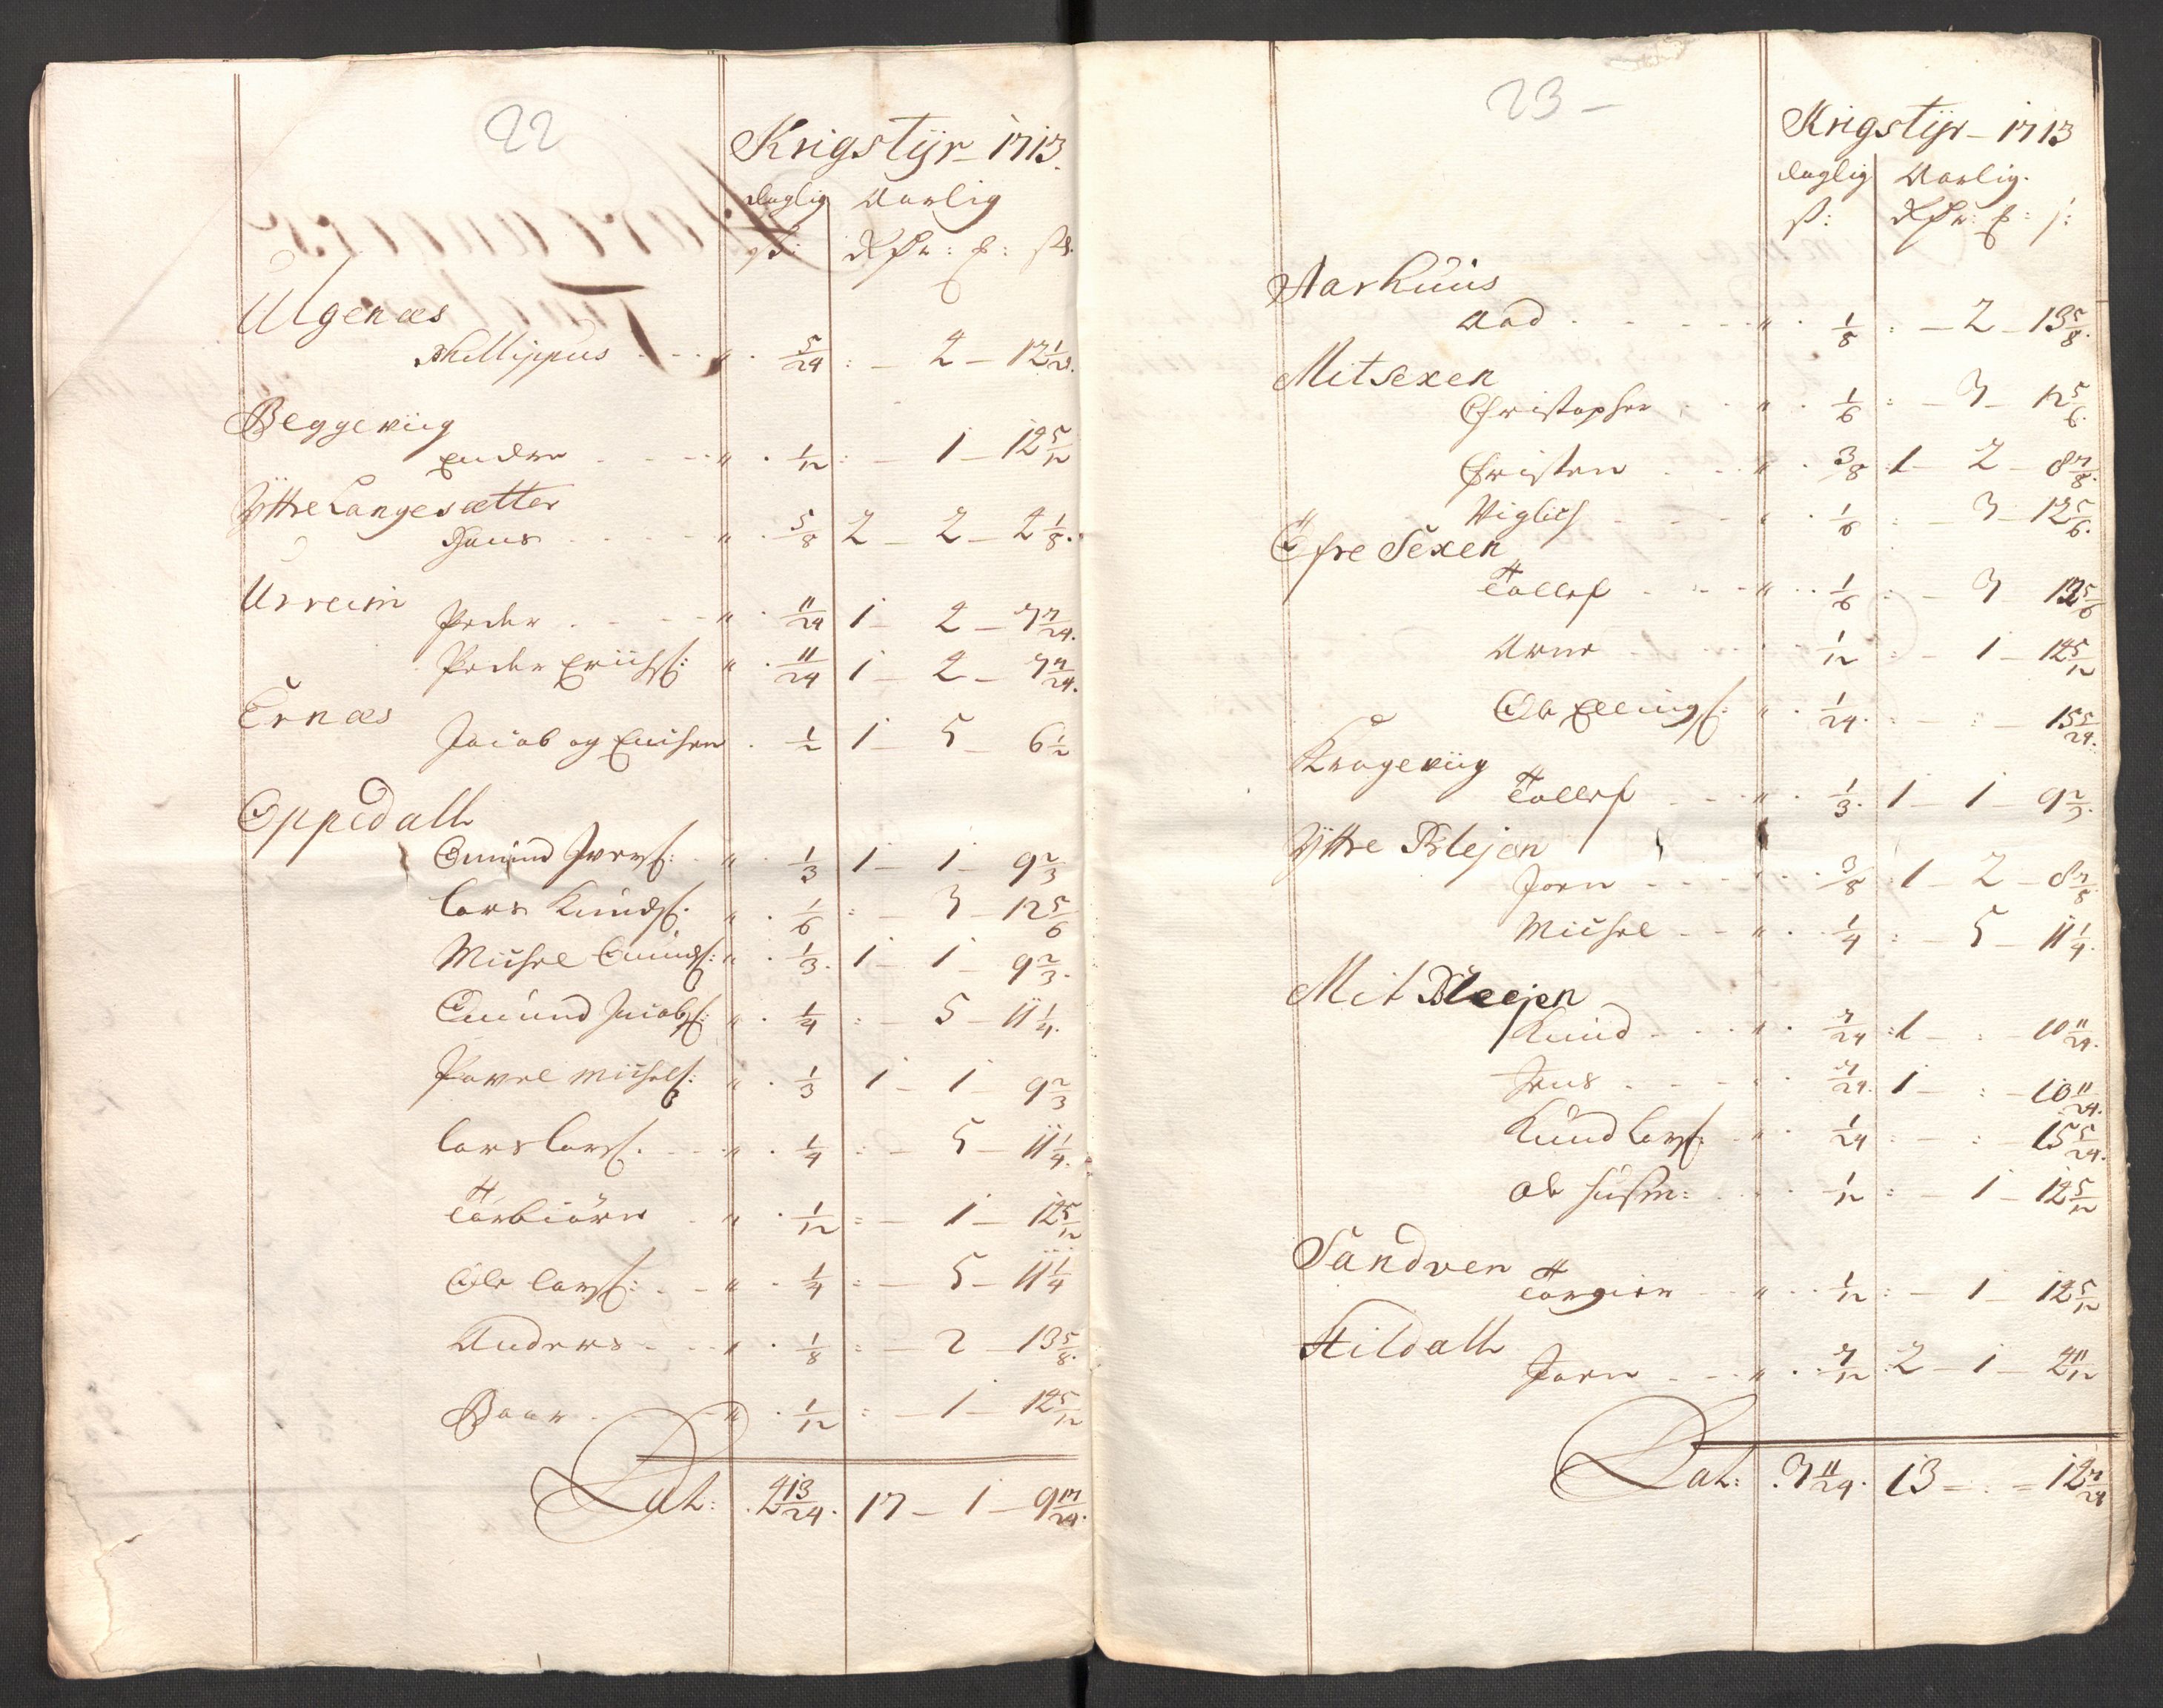 22
Krigstÿr 1713.
daglig Aarlig
ß: Rdr: £: ß.
Ulgenæs
Phillippus " 5/24 : 2 12 1/24.
Beggeviig
Endre " 1/12 : 1 12 5/12
Ÿttre Langesætter
Hans " 5/8 2 2 2 1/8.
Urreim
Peder " 11/24 1 2 7 7/24.
Peder Eriichs: " 11/24 1 2 7 7/24.
Ernæs
Jacob og Enchen 1/2 1 5 6 1/2
Oppedall
Omund Ivers: " 1/3 1 1 9 2/3
Lars Knuds: " 1/6 : 3 12 5/6
Michel Omunds: " 1/3. 1 1 9 2/3.
Omund Jacobs: " 1/4 : 5 11 1/4.
Powel Michels: " 1/3 1 1 9 2/3
Lars Lars: " 1/4 : 5 11 1/4.
Torbiörn " 1/12 : 1 12 5/12
Ole Lars: " 1/4 : 5 11 1/4
Anders " 1/8 : 2 13 5/8.
Baar " 1/12 : 1 12 5/12
Lat: 4 13/24. 17 1 9 17/24.
23
Krigstÿr 1713
daglig Aarlig.
ß: Rdr: £: ß:
Aarhuus
Aad " 1/8 : 2 13 5/8.
Mitsexen
Christopher " 1/6 : 3 12 5/6.
Christen " 3/8 1 2 8 7/8.
Viglich " 1/6 : 3 12 5/6.
Öfre Sexen
Tollef " 1/6 : 3 12 5/6
Arne 1/12 : 1 12 5/12
Ole Ellings: " 1/24. : : 15 5/24.
Krageviig
Tollef " 1/3. 1 1 9 2/3.
Ÿttre Blejen
Joen 3/8 1 2 8 7/8
Michel " 1/4 : 5 11 1/4.
Mit Bleejen
Knud " 7/24 1 : 10 11/24.
Jens " 7/24. 1 : 10 11/24.
Knud Lars: " 1/24 : : 15 5/24.
Ole husm: 1/12 : 1 12 5/12
Sandven
Torgier " 1/12 : 1 12 5/12
Hildall
Joen " 7/12 2 1 2 11/12
Lat: 3 11/24. 13 : 12 7/24